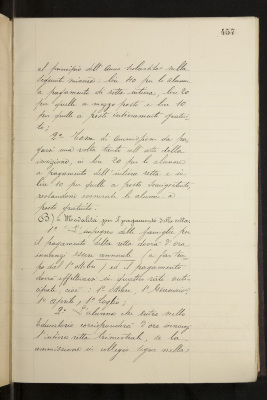 457
al principio dell'anno scolastico nella
seguente misura: lire 40 per le alunne
a pagamento di retta intera, lire 20
per quelle a mezzo posto e lire 10
per quelle a posto interamente gratui-
to;
2ª Tassa di ammissione da pa-
garsi una volta tanto all'atto della
iscrizione, in lire 20 per le alunne
a pagamento dell'intera retta e in
lire 10 per quelle a posto semigratuito,
restandone esonerate le alunne a
posto gratuito.
B) Modalità per il pagamento delle rette.
1º L'impegno delle famiglie per
il pagamento della retta dovrà d'ora
innanzi essere annuale (a far tem-
po dal 1º Ottobre) ed il pagamento
dovrà effettuarsi in quattro rate anti-
cipate, cioè: 1º Ottobre, 1º Gennaio,
1º Aprile, 1º Luglio;
2º L'alunna che entra nello
Educatorio corrisponderà d'ora innanzi
l'intera retta trimestrale, se la
ammissione in collegio segue nella